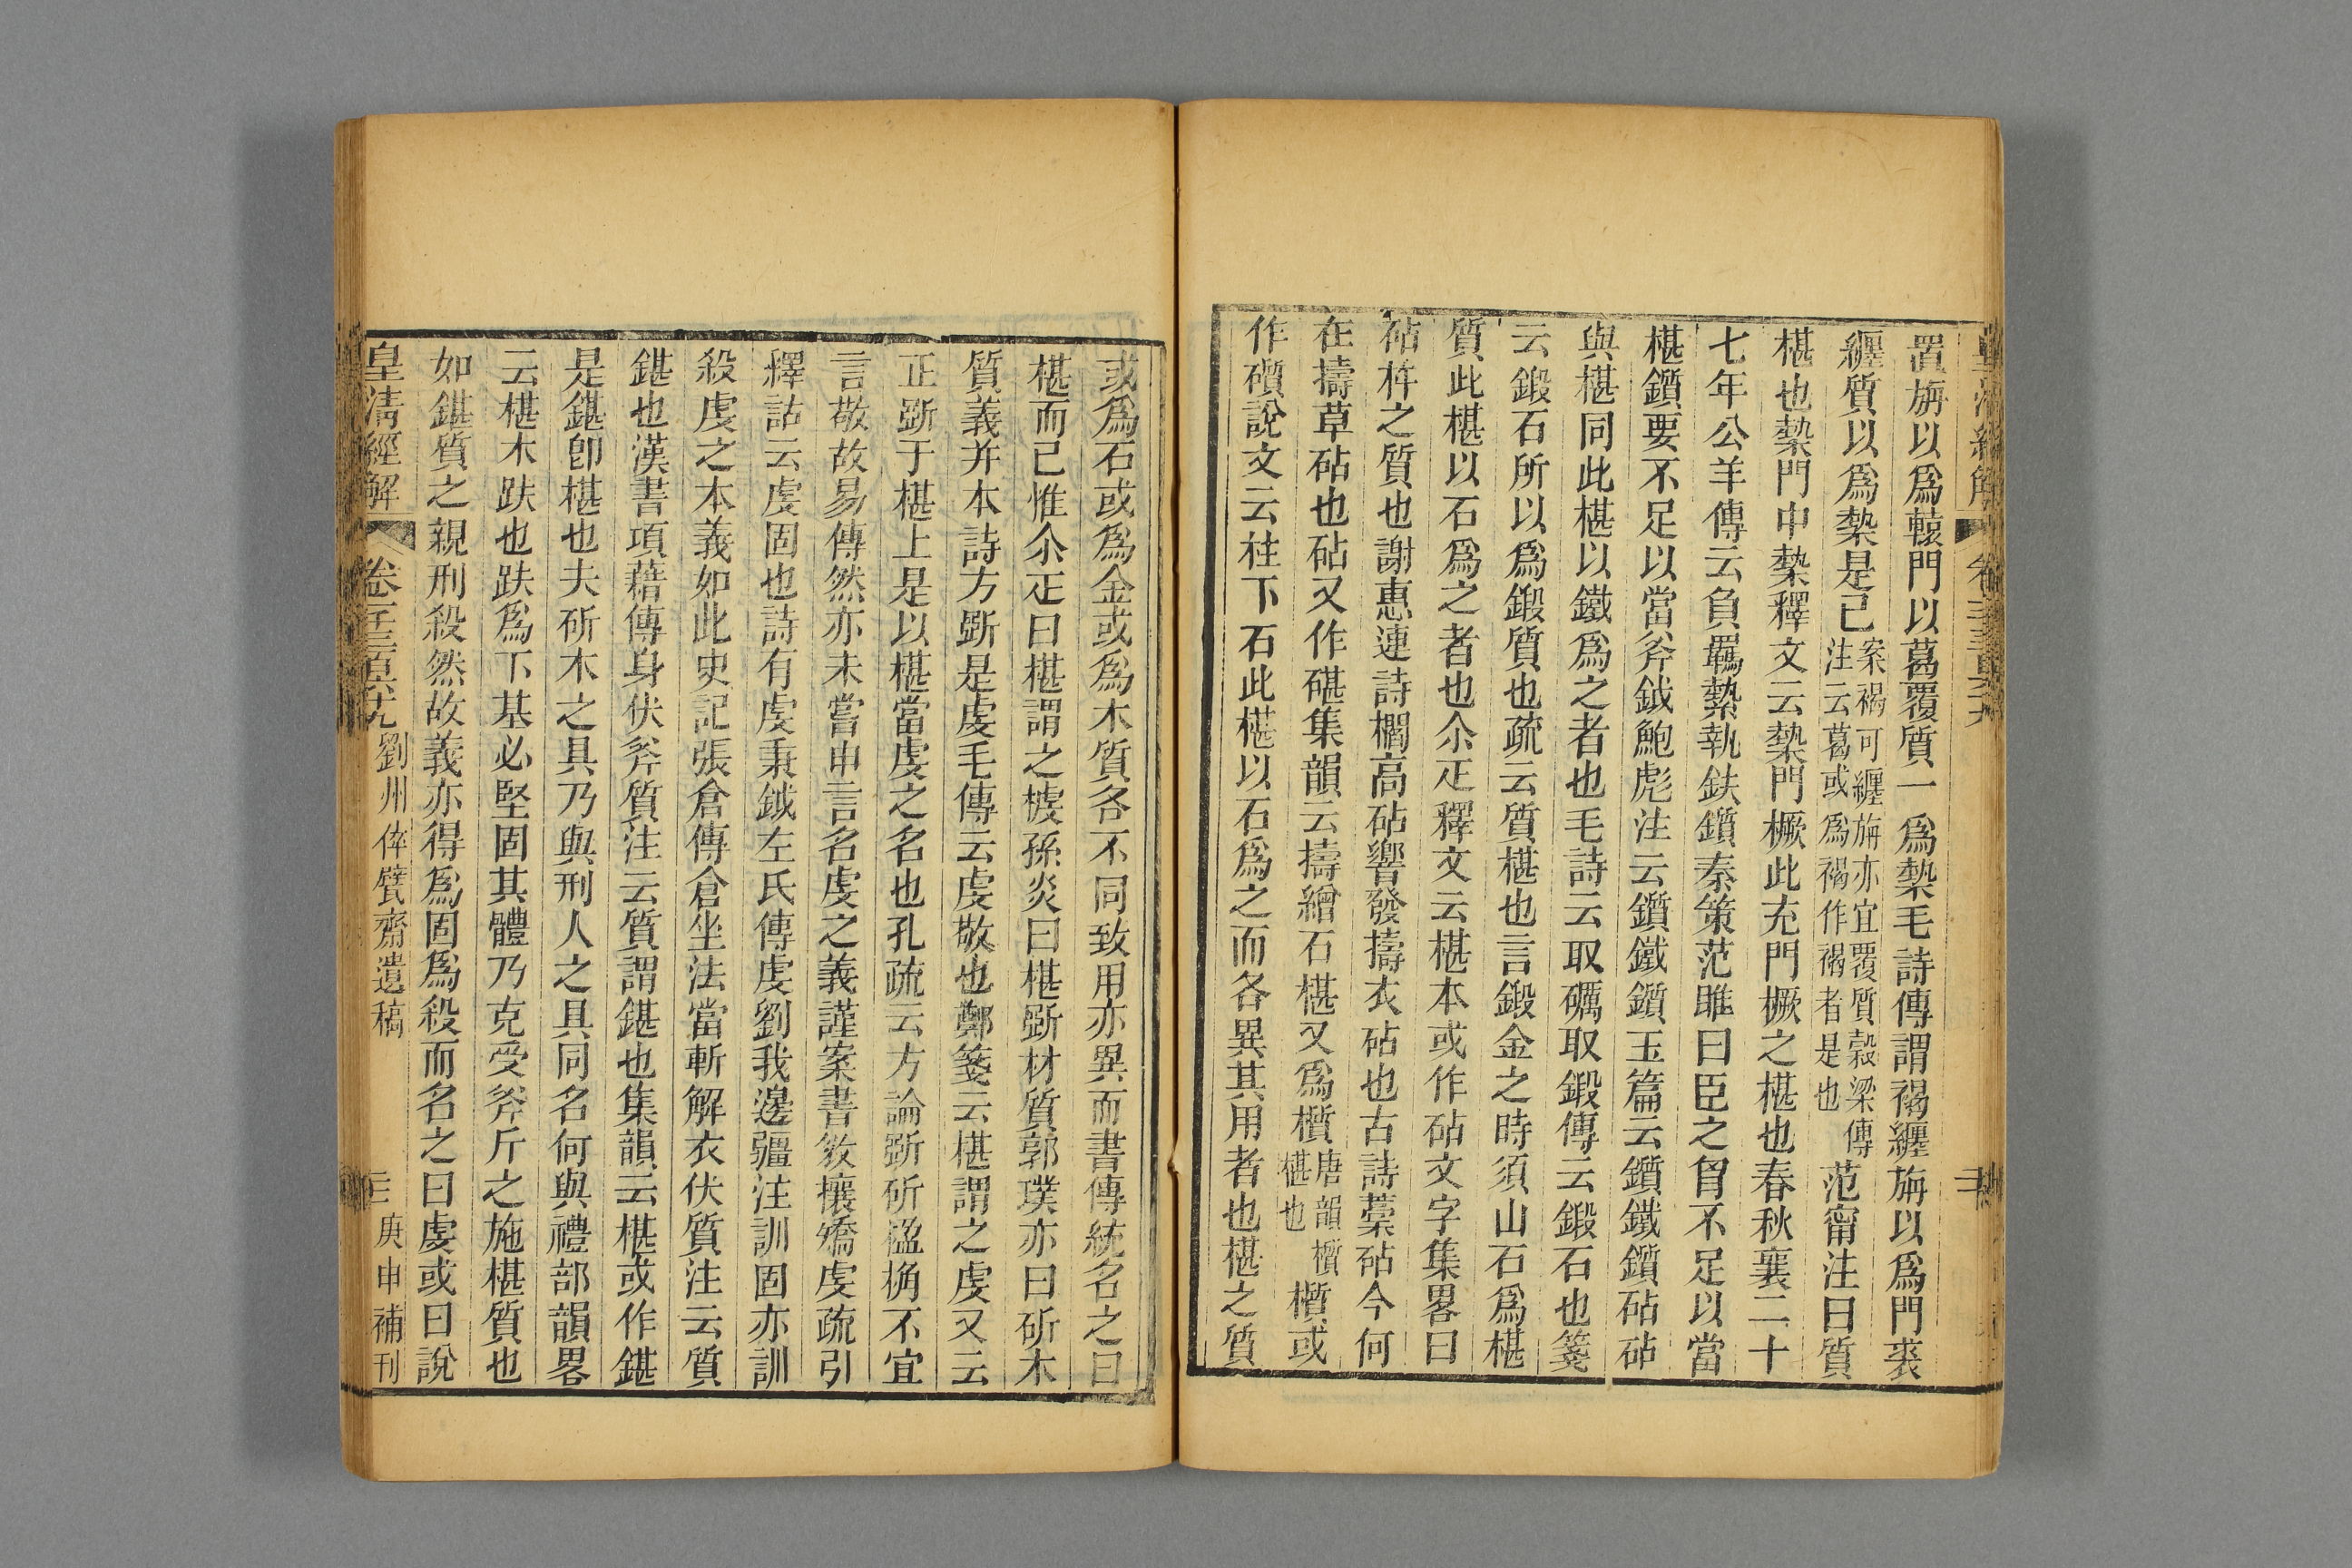 置旃以爲轅門以葛覆質一爲槷毛詩傳謂褐纏旃以爲門裘
纏質以爲槷是已案褐可纏旃亦宜覆質穀梁傳注云葛或爲褐作褐者是也范甯注曰質
椹也槷門中槷釋文云槷門橛此充門橛之椹也春秋襄二十
七年公羊傳云負羈縶執鈇鑕秦策范雎曰臣之胷不足以當
椹鑕要不足以當斧鉞鮑彪注云鑕鐵鑕玉篇云鑕鐵鑕砧砧
與椹同此椹以鐵爲之者也毛詩云取礪取鍛傳云鍛石也箋
云鍛石所以爲鍛質也疏云質椹也言鍛金之時須山石爲椹
質此椹以石爲之者也尒疋釋文云椹本或作砧文字集畧曰
砧杵之質也謝惠連詩櫚高砧響發擣衣砧也古詩藁砧今何
在擣草砧也砧又作碪集韻云擣繒石椹又爲櫍唐韻櫍椹也櫍或
作礩說文云柱下石此椹以石爲之而各異其用者也椹之質
皇清經解
三
或爲石或爲金或爲木質各不同致用亦異而書傳統名之曰
椹而已惟尒疋曰椹謂之榩孫炎曰椹斲材質郭璞亦曰斫木
質義并本詩方斲是虔毛傳云虔敬也鄭箋云椹謂之虔又云
正斲于椹上是以椹當虔之名也孔疏云方論斲斫楹桷不宜
言敬故易傳然亦未嘗申言名虔之義謹案書敚攘矯虔疏引
釋詁云虔固也詩有虔秉鉞左氏傳虔劉我邊疆注訓固亦訓
殺虔之本義如此史記張倉傳倉坐法當斬解衣伏質注云質
鍖也漢書項藉傳身伏斧質注云質謂鍖也集韻云椹或作鍖
是鍖卽椹也夫斫木之具乃與刑人之具同名何與禮部韻畧
云椹木趺也趺爲下基必堅固其體乃克受斧斤之施椹質也
如鍖質之親刑殺然故義亦得爲固爲殺而名之曰虔或曰說
皇清經解
卷一千三百六十九
劉州倅甓齋遺稿
三
庚申補刊